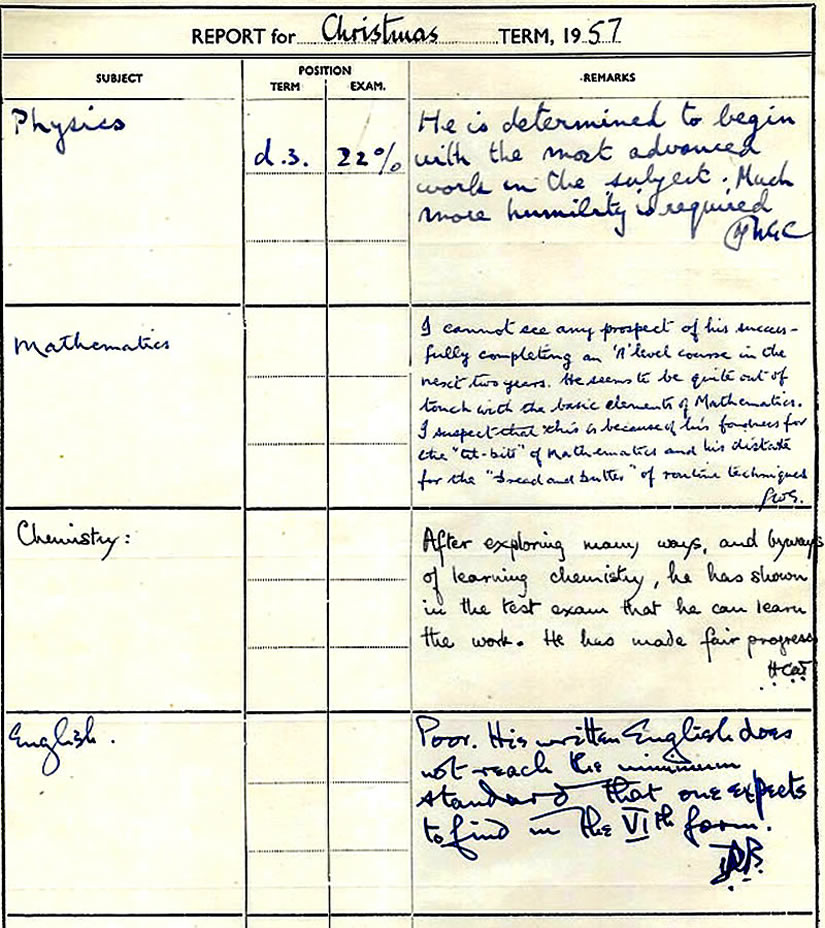 REPORT for Christmas TERM, 1957
SUBJECT POSITION REMARKS
TERM EXAM.
Physics d.3. 22%
He is determined to begin
with the most advanced
work in the subject. Much
more humility is required
Mathematics
I cannot see any prospect of his success-
fully completing an 'A' level course in the
next two years. He seems to be quite out of
touch with the basic elements of Mathematics.
I suspect that this is because of his fondness for
the "tit-bits" of Mathematics and his distaste
for the "bread and butter" of routine techniques
Chemistry:
After exploring many ways, and byways
of learning chemistry, he has shown
in the test exam that he can learn
the work. He has made fair progress
English.
Poor. His written English does
not reach the minimum
standard that one expects
to find in the VIth form.